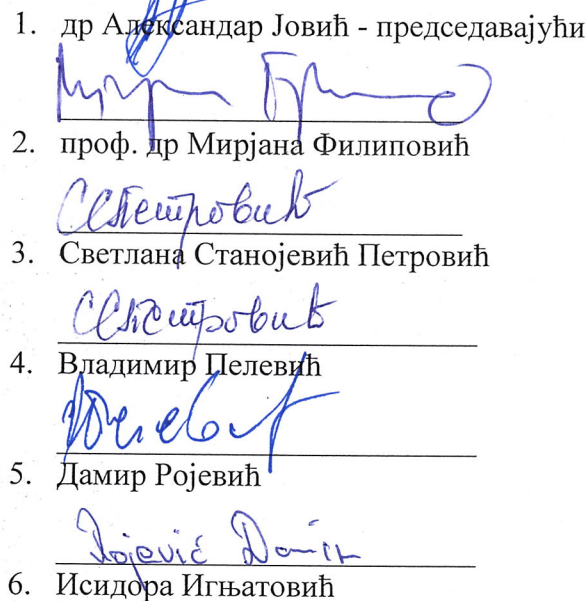 1. др Александар Јовић - председавајући
2. проф. др Мирјана Филиповић
ССПетровић
3. Светлана Станојевић Петровић
ССПетровић
4. Владимир Пелевић
5. Дамир Ројевић
Rojević Damir
6. Исидора Игњатовић